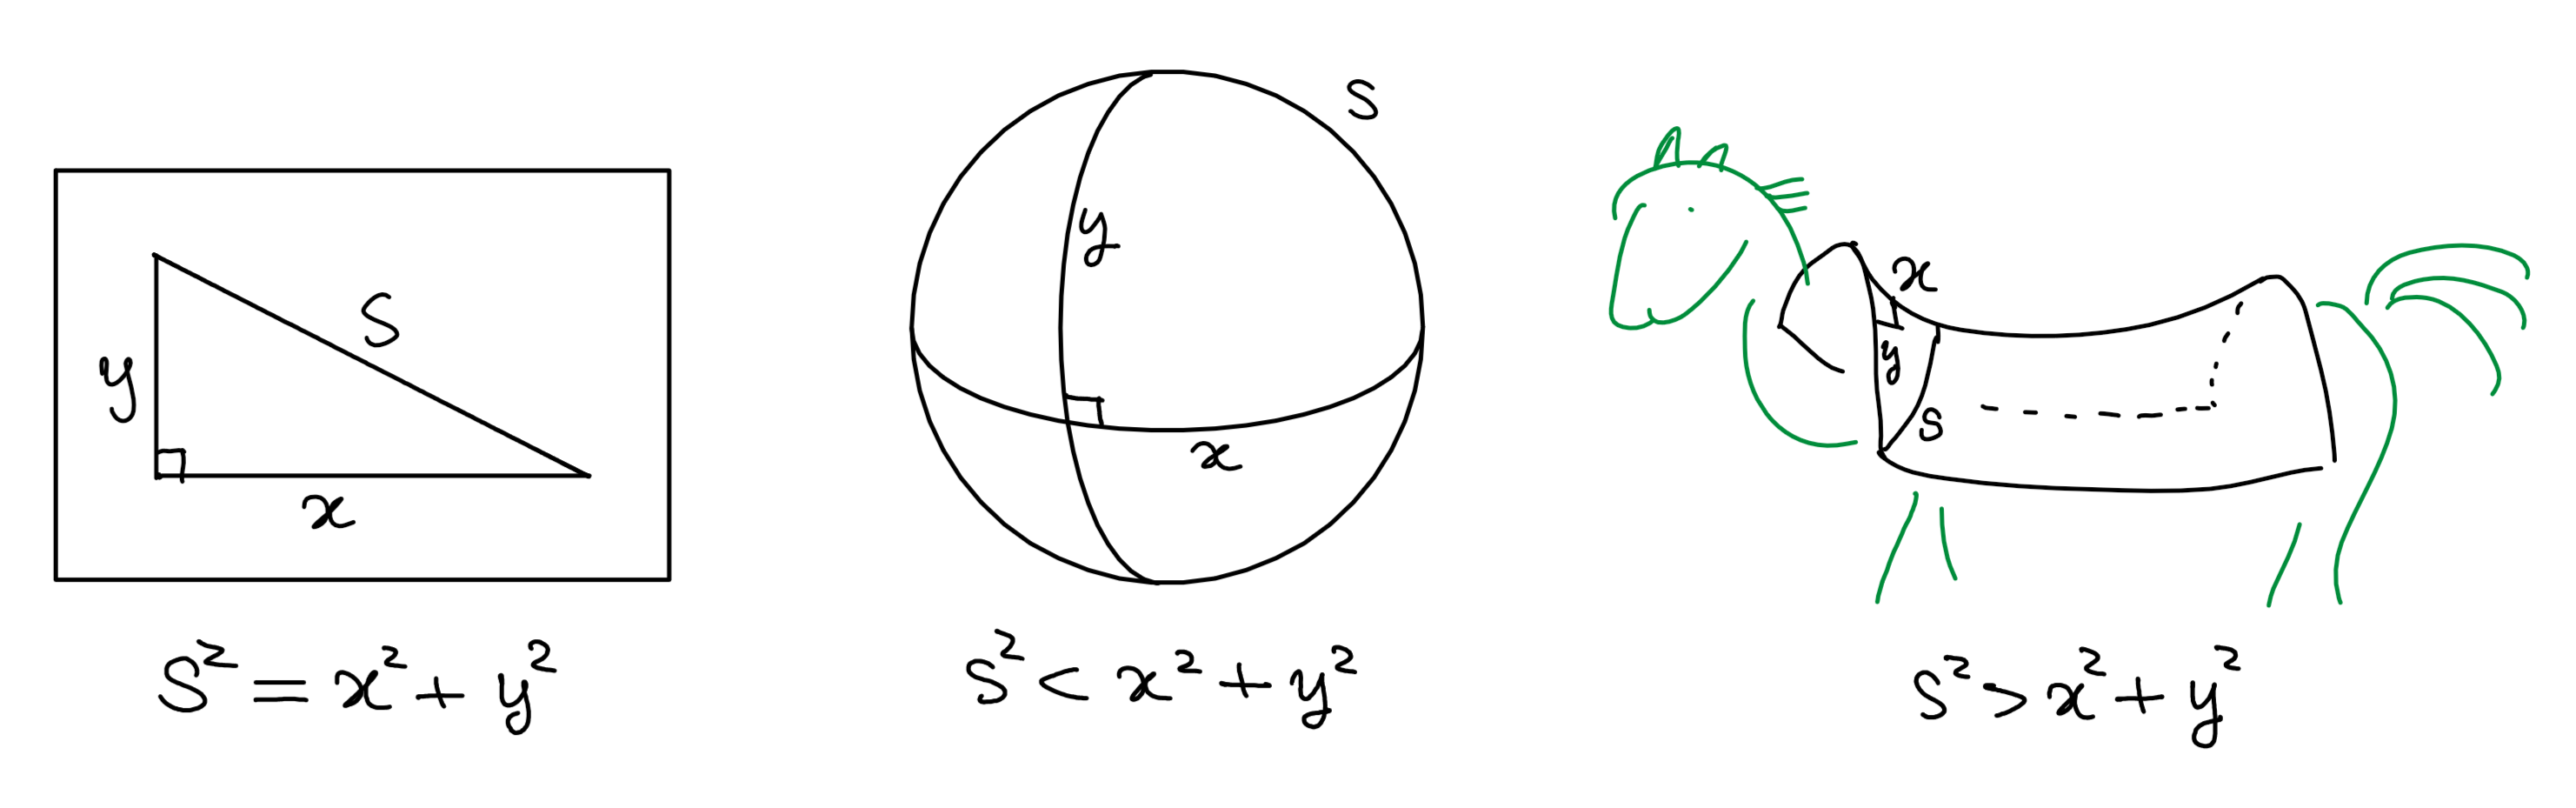 y
S
x
S² = x² + y²
S
y
x
S² < x² + y²
x
y
S
S² > x² + y²